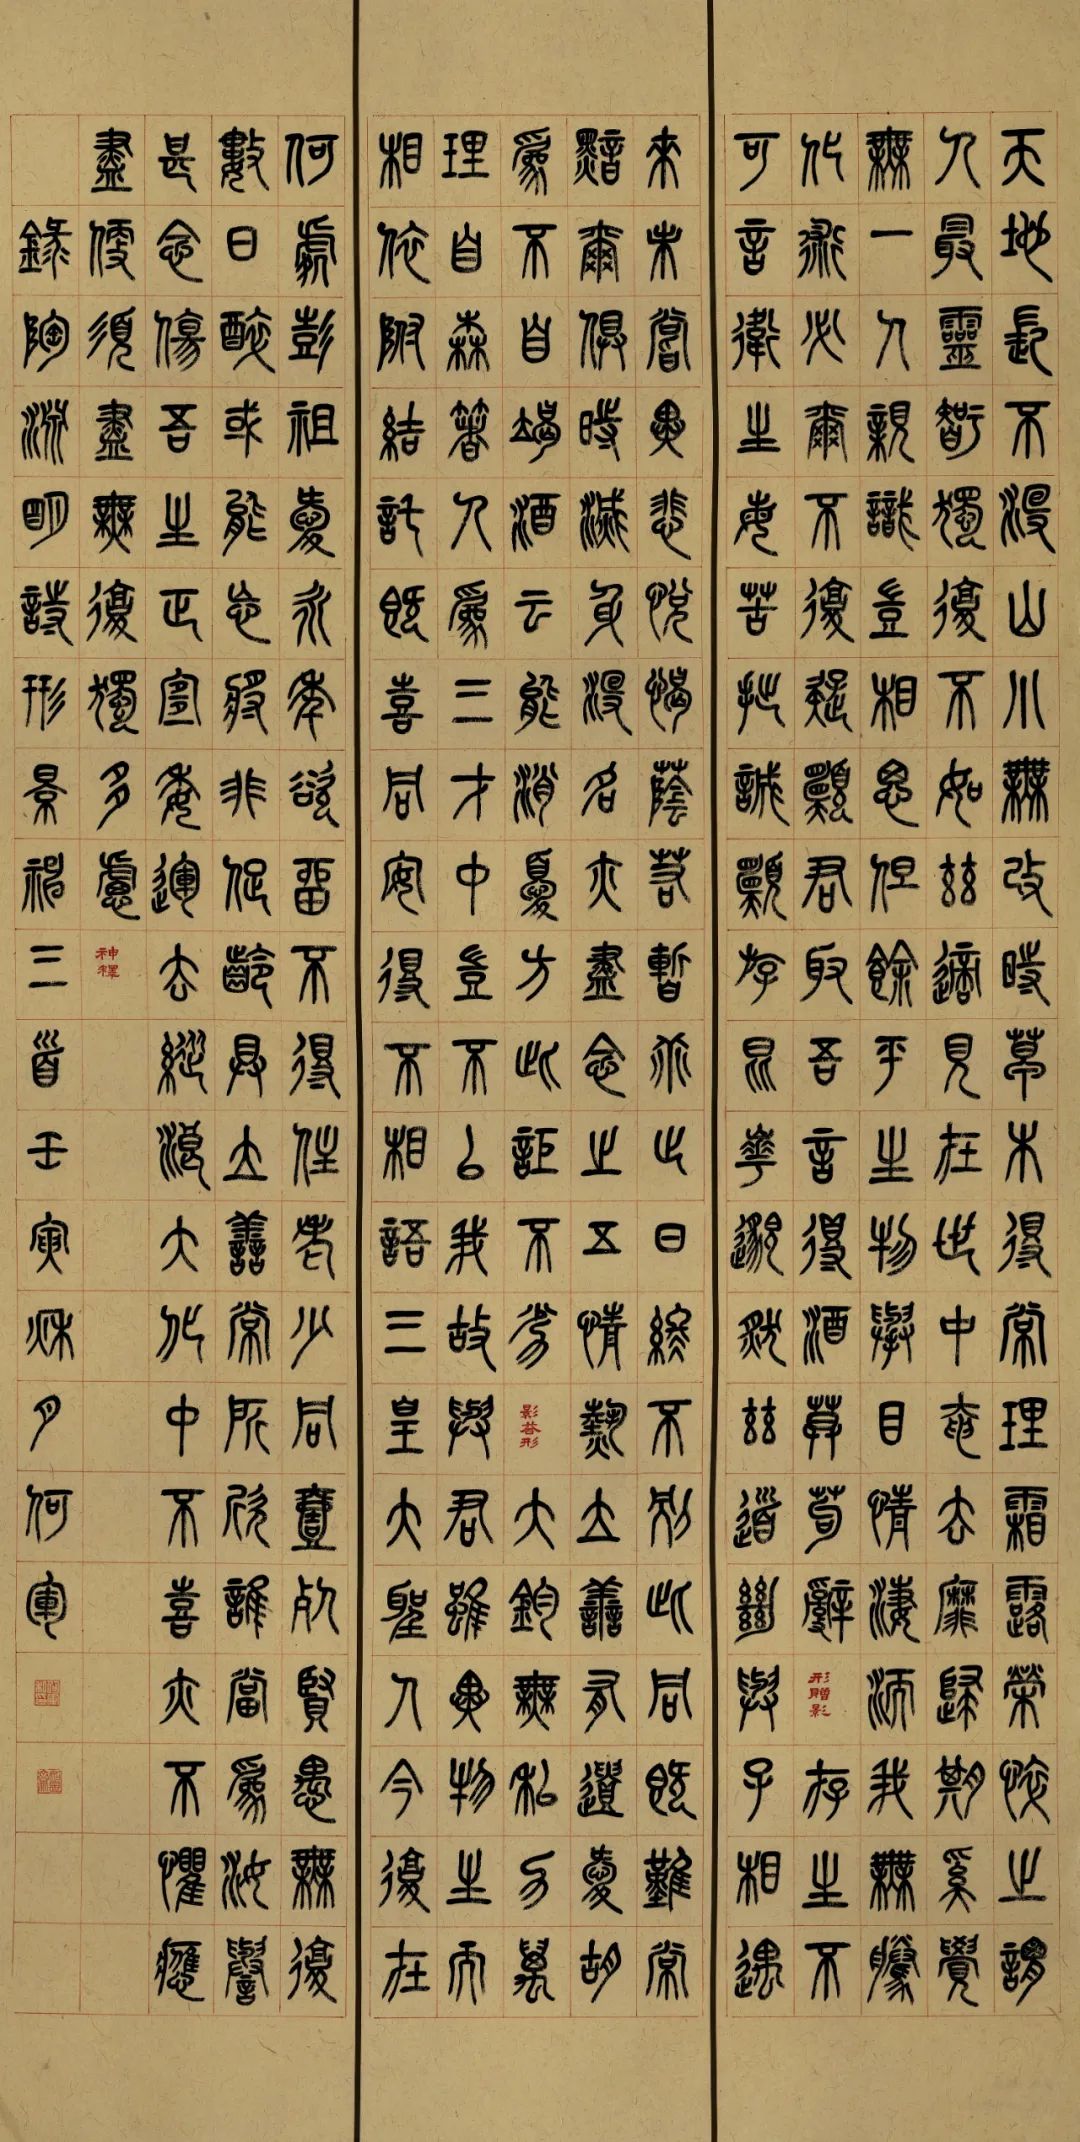 天地長不没山川無改時草木得常理霜露榮悴之謂
人最靈智獨復不如茲適見在世中奄去靡歸期奚覺
無一人親識豈相思但餘平生物舉目情悽洏我無騰
化術必爾不復疑願君取吾言得酒莫苟辭形贈影存生不
可言衛生每苦拙誠願游昆華邈然茲道絕與子相遇
來未嘗異悲悅憩蔭若暫乖止日終不別此同既難常
黯爾俱時滅身没名亦盡念之五情熱立善有遺愛胡
爲不自竭酒云能消憂方此詎不劣影荅形大鈞無私力萬
理自森著人爲三才中豈不以我故與君雖異物生而
相依附結託既喜同安得不相語三皇大聖人今復在
何處彭祖愛永年欲留不得住老少同壹死賢愚無復
數日醉或能忘將非促齡具立善常所欣誰當爲汝譽
甚念傷吾生正宜委運去縱浪大化中不喜亦不懼應
盡便須盡無復獨多慮神釋
錄陶淵明詩形景神三首壬寅秋月何軍